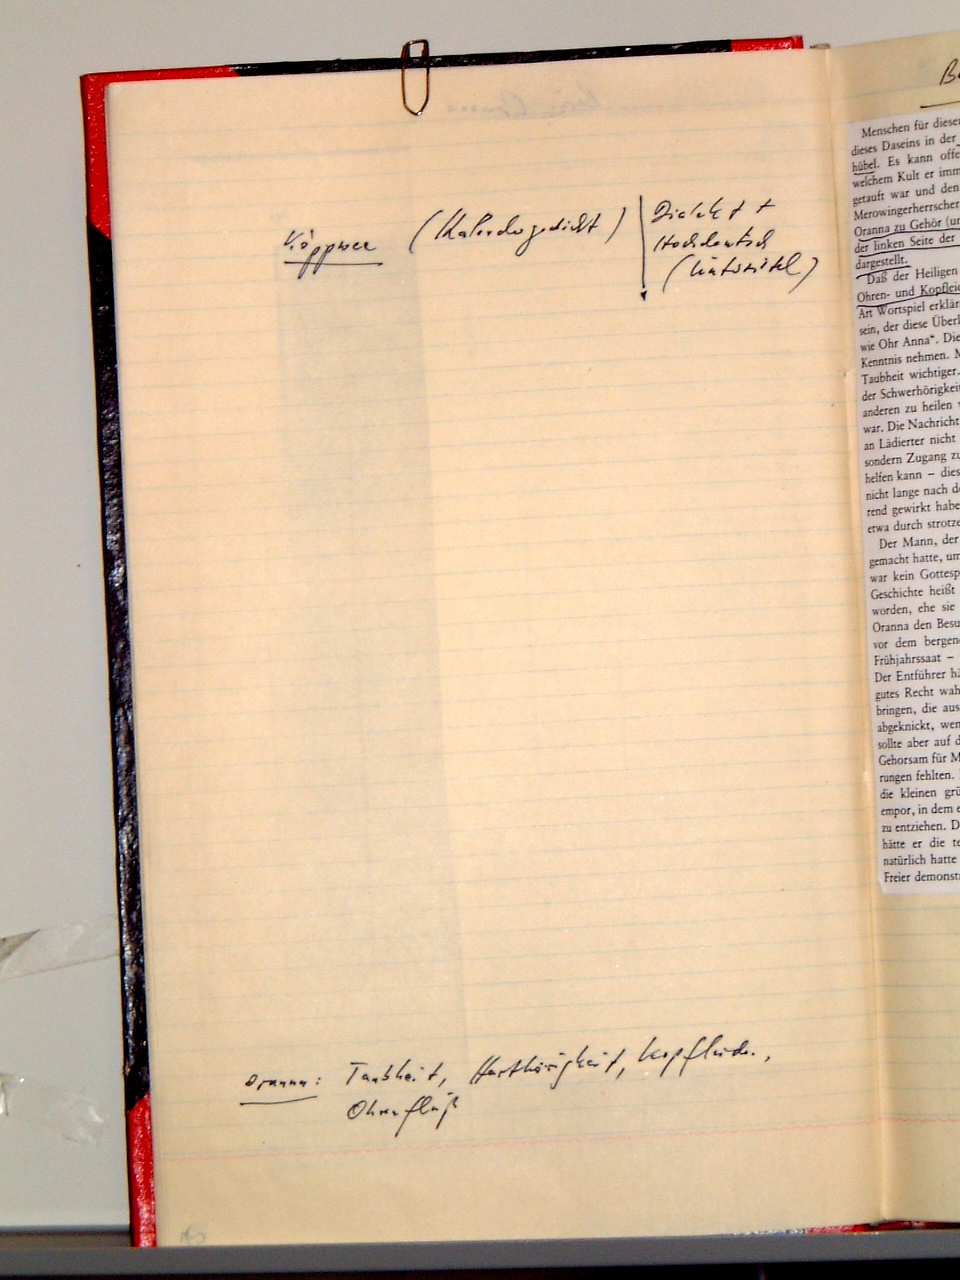 (Kalendergedicht)
Dialekt +
Hochdeutsch
(Untertitel)
Oranna: Taubheit, Harthörigkeit, Kopfleid.,
Ohrenfluß
Menschen für diese
dieses Daseins in der
hübel. Es kann offe
welchem Kult er imm
getauft war und den
Merowingerherrscher
Oranna zu Gehör (un
der linken Seite der
dargestellt.
Daß der Heiligen
Ohren- und Kopfleid
Art Wortspiel erklär
sein, der diese Überl
wie Ohr Anna“. Die
Kenntnis nehmen. M
Taubheit wichtiger.
der Schwerhörigkeit
anderen zu heilen v
war. Die Nachricht
an Lädierter nicht
sondern Zugang zu
helfen kann – dies
nicht lange nach de
rend gewirkt habe
etwa durch strotze
Der Mann, der
gemacht hatte, um
war kein Gottesp
Geschichte heißt
worden, ehe sie
Oranna den Besu
vor dem bergen
Frühjahrssaat –
Der Entführer hä
gutes Recht wah
bringen, die aus
abgeknickt, wen
sollte aber auf d
Gehorsam für M
rungen fehlten.
die kleinen grü
empor, in dem e
zu entziehen. D
hätte er die te
natürlich hatte
Freier demonst